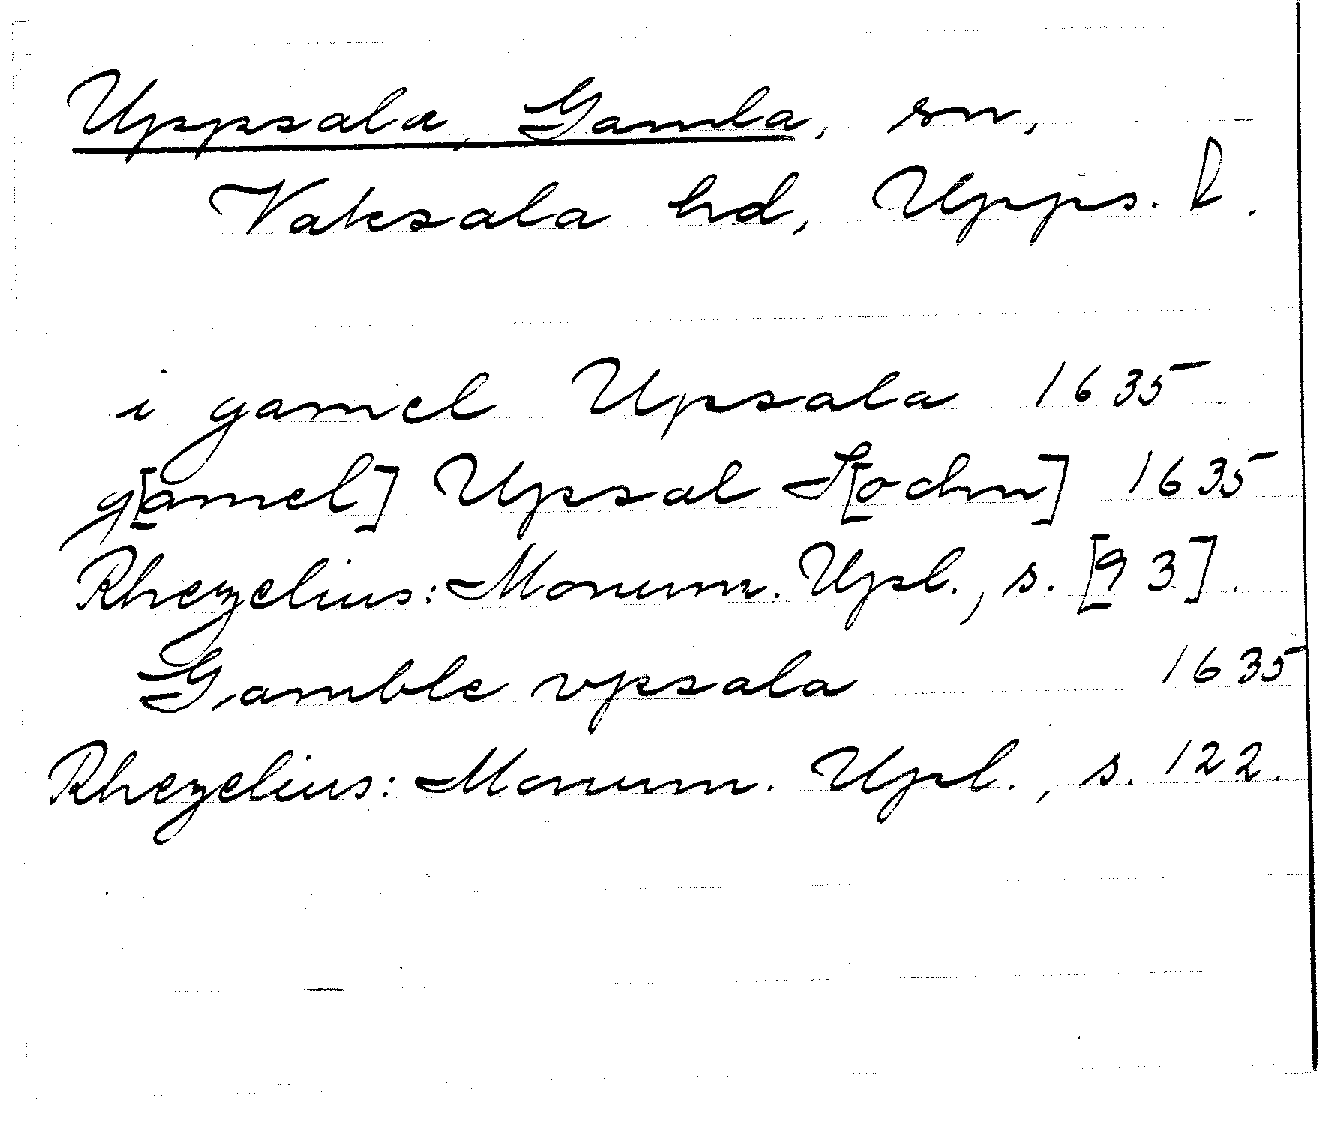 Uppsala, Gamla, sn,
Vaksala hd, Upps. l.
i gamel Upsala 1635
g[amel] Upsal S[ochn] 1635
Rhezelius: Monum. Upl., s. [93].
Gamble vpsala 1635
Rhezelius: Monum. Upl., s. 122.